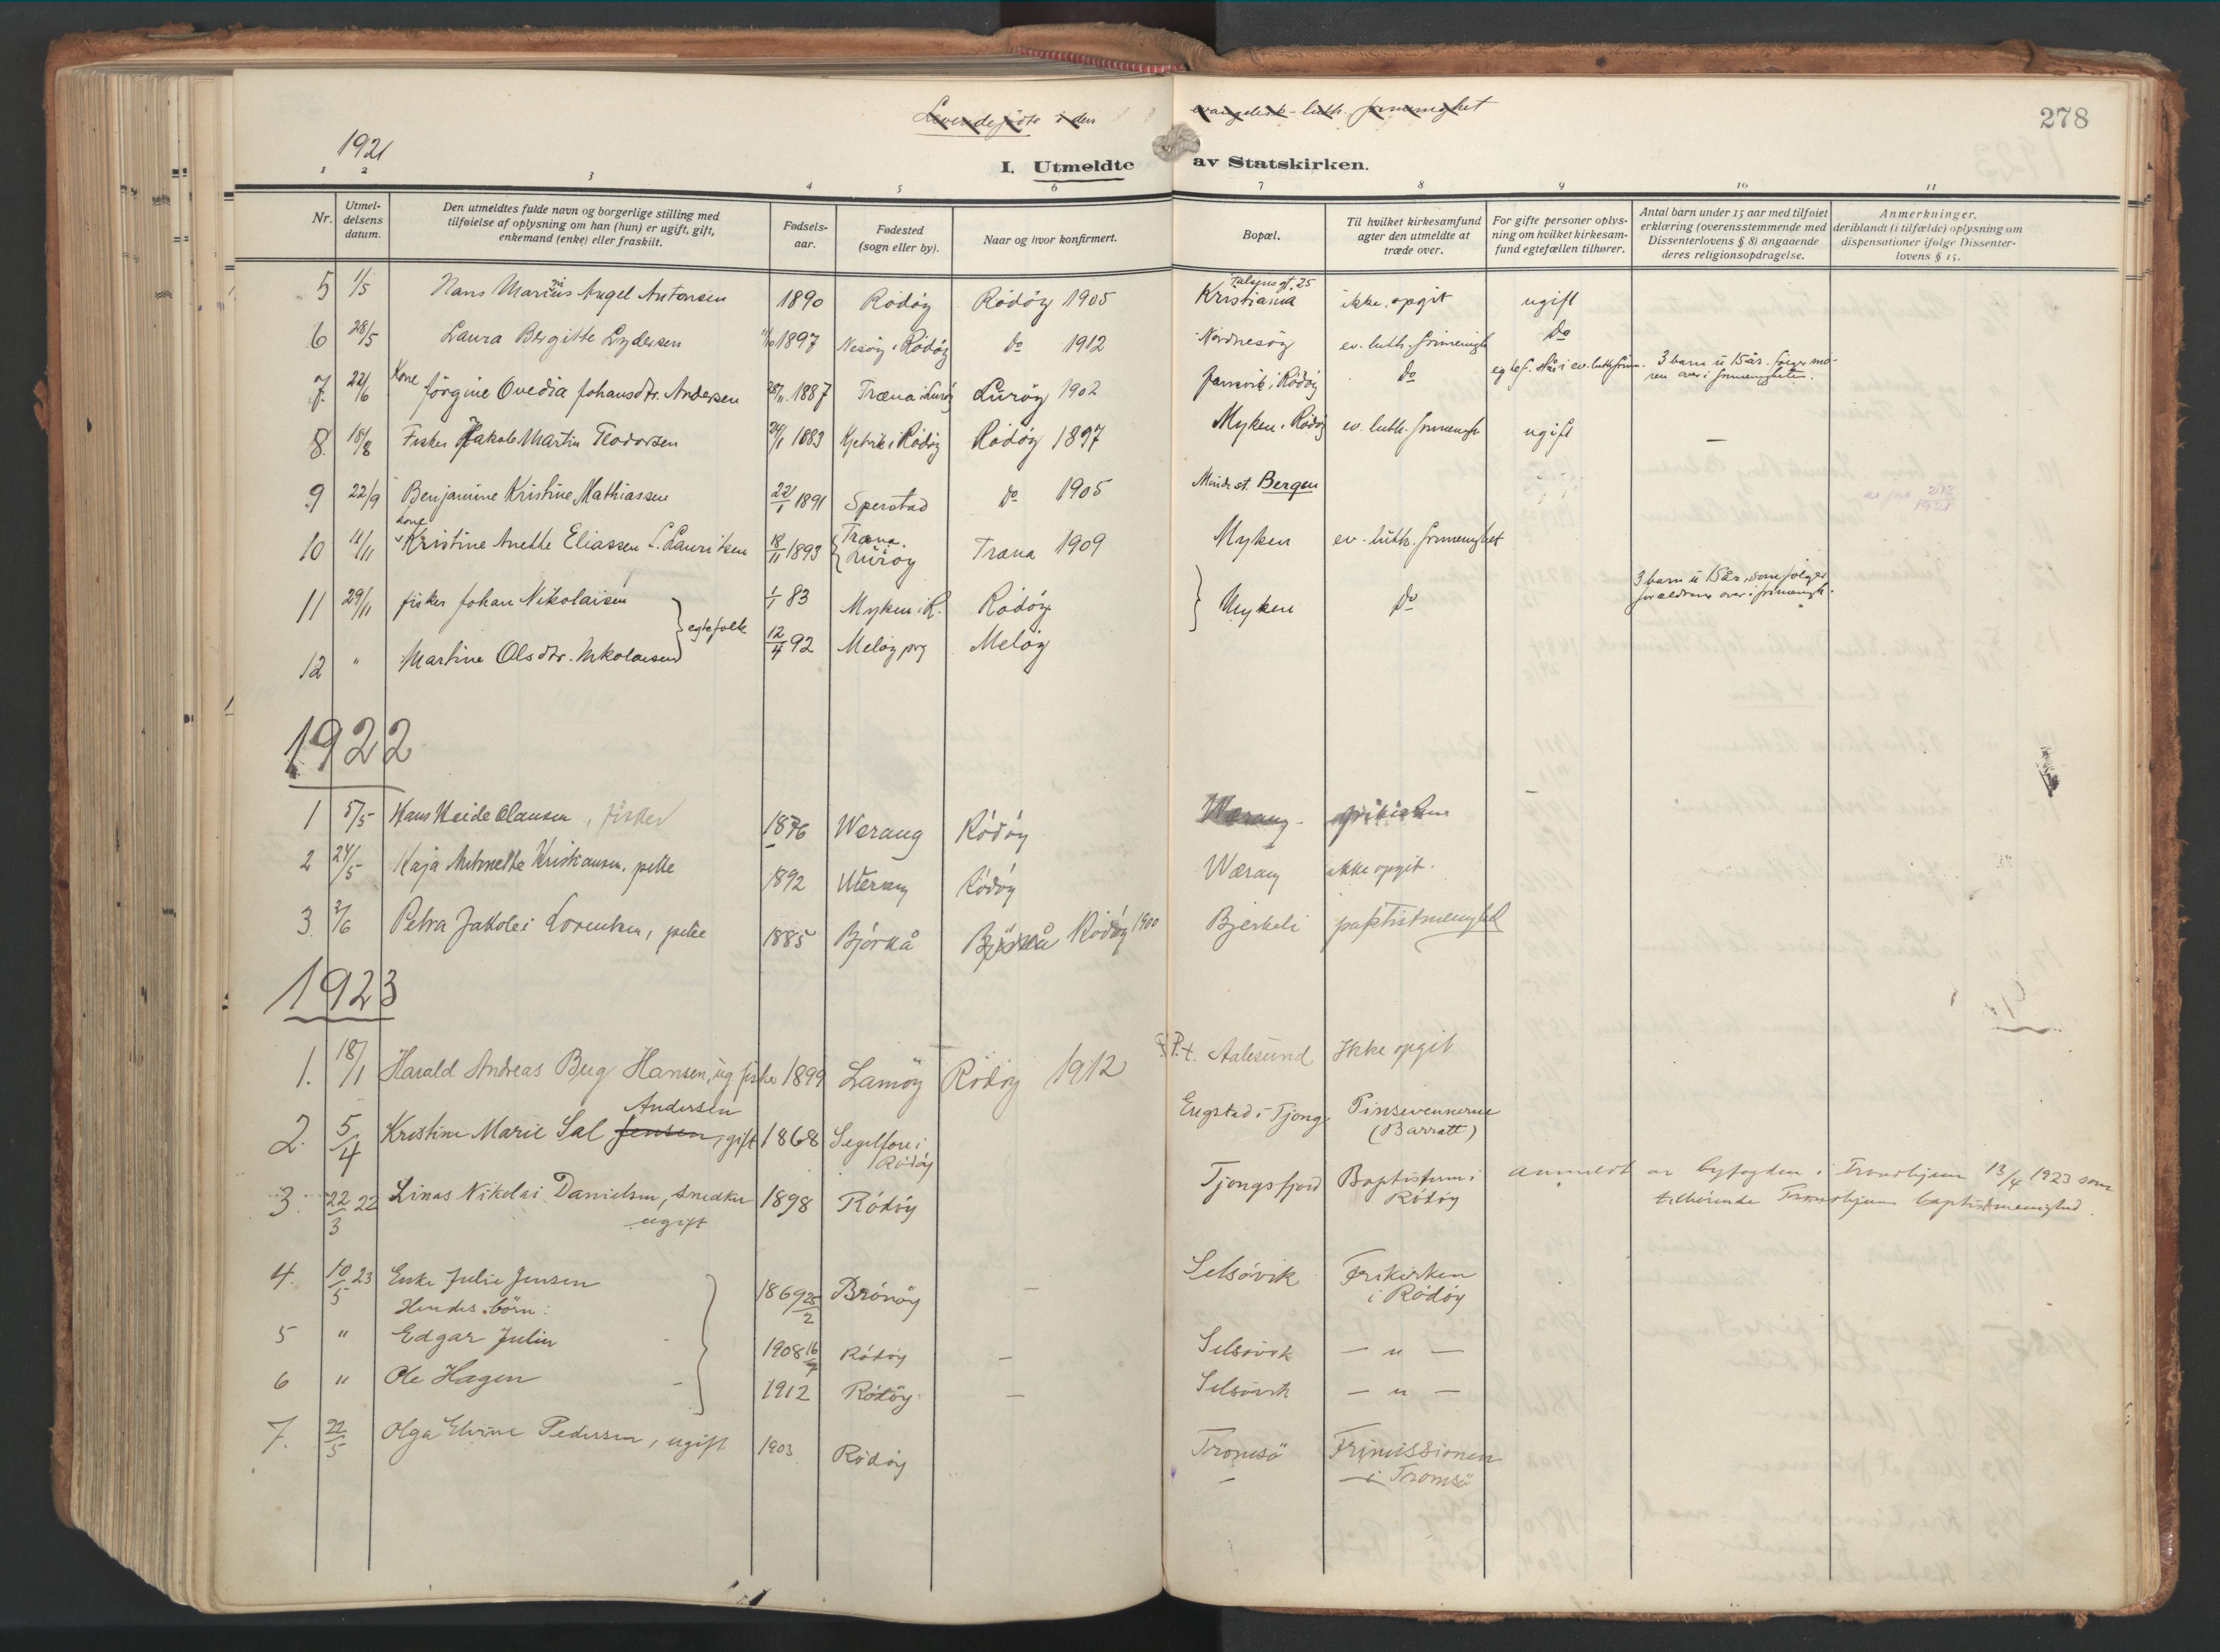 278
Levendefødte i den evangelisk-luth. frimenighet
1921
I. Utmeldte av Statskirken.
1 2 3 4 5 6 7 8 9 10 11
Nr.
Utmel-
delsens
datum.
Den utmeldtes fulde navn og borgerlige stilling med
tilføielse af oplysning om han (hun) er ugift, gift,
enkemand (enke) eller fraskilt.
Fødsels-
aar.
Fødested
(sogn eller by).
Naar og hvor konfirmert.
Bopæl.
Til hvilket kirkesamfund
agter den utmeldte at
træde over.
For gifte personer oplys-
ning om hvilket kirkesam-
fund egtefællen tilhører.
Antal barn under 15 aar med tilføiet
erklæring (overensstemmende med
Dissenterlovens § 8) angaaende
deres religionsopdragelse.
Anmerkninger,
deriblandt (i tilfælde) oplysning om
dispensationer ifølge Dissenter-
lovens § 15.
5 1/5 Hans Marius Angel Antonsen 1890 Rödöy Rödöy 1905 Kristiania ikke opgit ugift
6 28/5 Laura Bergitte Lydersen 1897 Nesöy i Rödöy do 1912 Nordnesöy ev. luth. frimenigh do
7. 22/6 Kone Jörgine Ovedia Johansdtr. Andersen 28/11. 1887 Træna i Luröy Luröy 1902 i Rödöy do egtef. står i ev. luth. frim. 3 barn u 15 år. følger mo-
ren over i frimenigheten.
8. 18/8 Fisker Jakob Martin Teodorsen 24/1 1883 i Rödöy Rödöy 1897 Myken i Rödöy ev. luth. frimenigh ugift —
9 22/9 Benjamine Kristine Mathiassen 22/1 1891 Sperstad do 1905 Bergen
213/1921
10 11/11 kone Kristine Anette Eliassen f. Lauritsen 18/11 1893 Træna. Luröy Træna 1909 Myken ev. luth. frimenighet
11 29/11 fisker Johan Nikolaisen 1/1 83 Myken i R. Rödöy Myken do 3 barn u 15 år, som følger
forældrene over i frimenigh.
egtefolk
12 " Martine Olsdtr. Nikolaisen 12/4 92 Melöy prg Melöy
1922
1 5/5 Hans Heide Olausen, fisker 1876 Værang Rödöy Værang frikirken
2 24/5 Kaja Antonette Kristiansen, pike 1892 Værang Rödöy Værang ikke opgit.
3 2/6 Petra Jakobei Lorentsen, pike 1885 Björkå Björkå Rödöy 1900 Bjerkeli baptistmenighed
1923
1. 18/1 Harald Andreas Berg Hansen, ug fisker 1899 Lamöy Rödöy 1912 P.t. Aalesund Ikke opgit
2. 5/4 Kristine Marie Sal Jensen Andersen, gift 1868 Segelfore i
Rödöy Engstad i Tjong Pinsevennerne
(Barratt)
3. 22/3 22 Linas Nikolai Danielsen, snedker
ugift 1898 Rödöy Tjongsfjord Baptistum i
Rödöy anmeldt av byfogden i Trondhjem 13/4 1923 som
tilhørende Trondhjems baptistmenighed.
4. 10/5 23 Enke Julie Jensen 1869 25/2 Brönöy — Selsövik Frikirken
i Rödöy
Hendes börn:
5 " Edgar Julin 1908 16/9 Rödöy — Selsövik — " —
6 " Ole Hagen 1912 Rödöy — Selsövik — " —
7. 22/5 Olga Elvine Pedersen, ugift 1903 Rödöy Tromsö Frimissionen
i Tromsö